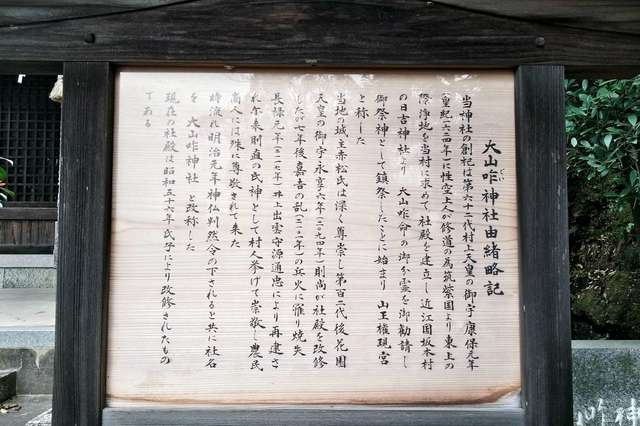 大山咋神社由緒略記
当神社の創祀は第六十二代村上天皇の御宇 康保元年
(皇紀一六二四年)に性空上人が修道の為筑紫国より東上の
際浄地を当村に求めて社殿を建立し近江国坂本村
の日吉神社より 大山咋命の御分霊を御勧請し
御祭神として鎮祭したことに始まり 山王権現宮
と称した
当地の城主赤松氏は深く尊崇し第百二代後花園
天皇の御宇永享六年(二〇九四年)則尚が社殿を改修
したが七年後嘉吉の乱(二一〇一年)の兵火に罹り焼失
長禄元年(二一一七年)井上出雲守源通忠により再建さ
れ尓来則直の氏神として村人挙げて崇敬し農民
商人には殊に尊敬されて来た
時流れ明治元年神仏判然令の下されると共に社名
を 大山咋神社 と改称した
現在の社殿は昭和五十六年氏子により改修されたもの
である
咋神